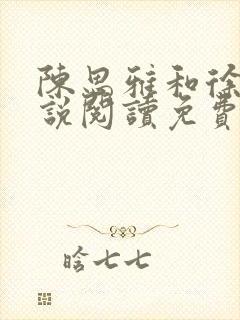 陳思雅和徐
說閱讀免費
晗七七